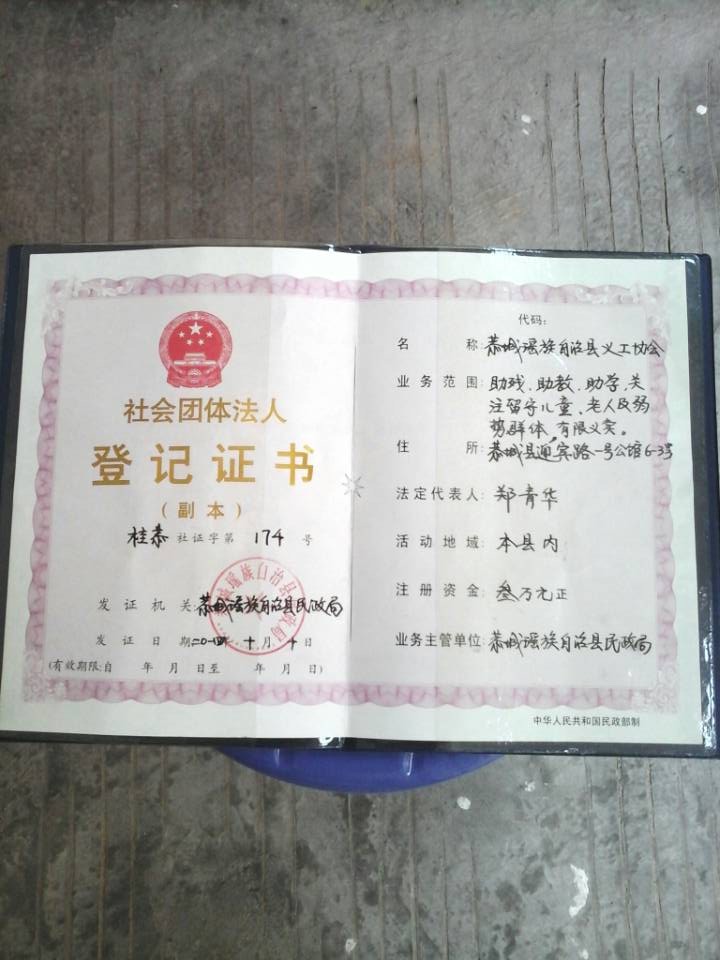 社会团体法人
登记证书
(副本)
桂恭 社证字第 174 号
发证机关:恭城瑶族自治县民政局
发证日期 十月十日
(有效期限:自 年 月 日至 年 月 日)
代码:
名称:恭城瑶族自治县义工协会
业务范围:助残、助教、助学、关
注留守儿童、老人及弱
势群体、有限义卖。
住所:恭城县迎宾路一号公馆6-3号
法定代表人:郑青华
活动地域:本县内
注册资金:叁万元正
业务主管单位:恭城瑶族自治县民政局
中华人民共和国民政部制